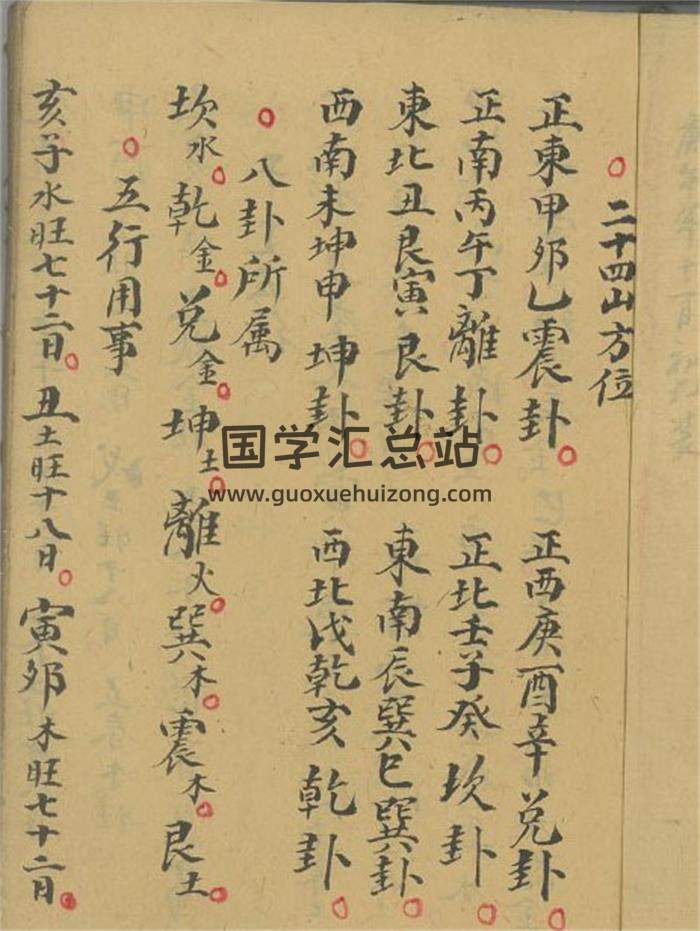 二十四山方位
正東甲夘乙震卦。 正西庚酉辛兌卦。
正南丙午丁離卦。 正北壬子癸坎卦。
東北丑艮寅艮卦。 東南辰巽巳巽卦。
西南未坤申坤卦。 西北戌乾亥乾卦。
八卦所属
坎水。乾金。兌金。坤土。離火。巽木。震木。艮土。
五行用事
亥子水旺七十二日。丑土旺十八日。寅夘木旺七十二日。
国学汇总站
www.guoxuehuizong.com